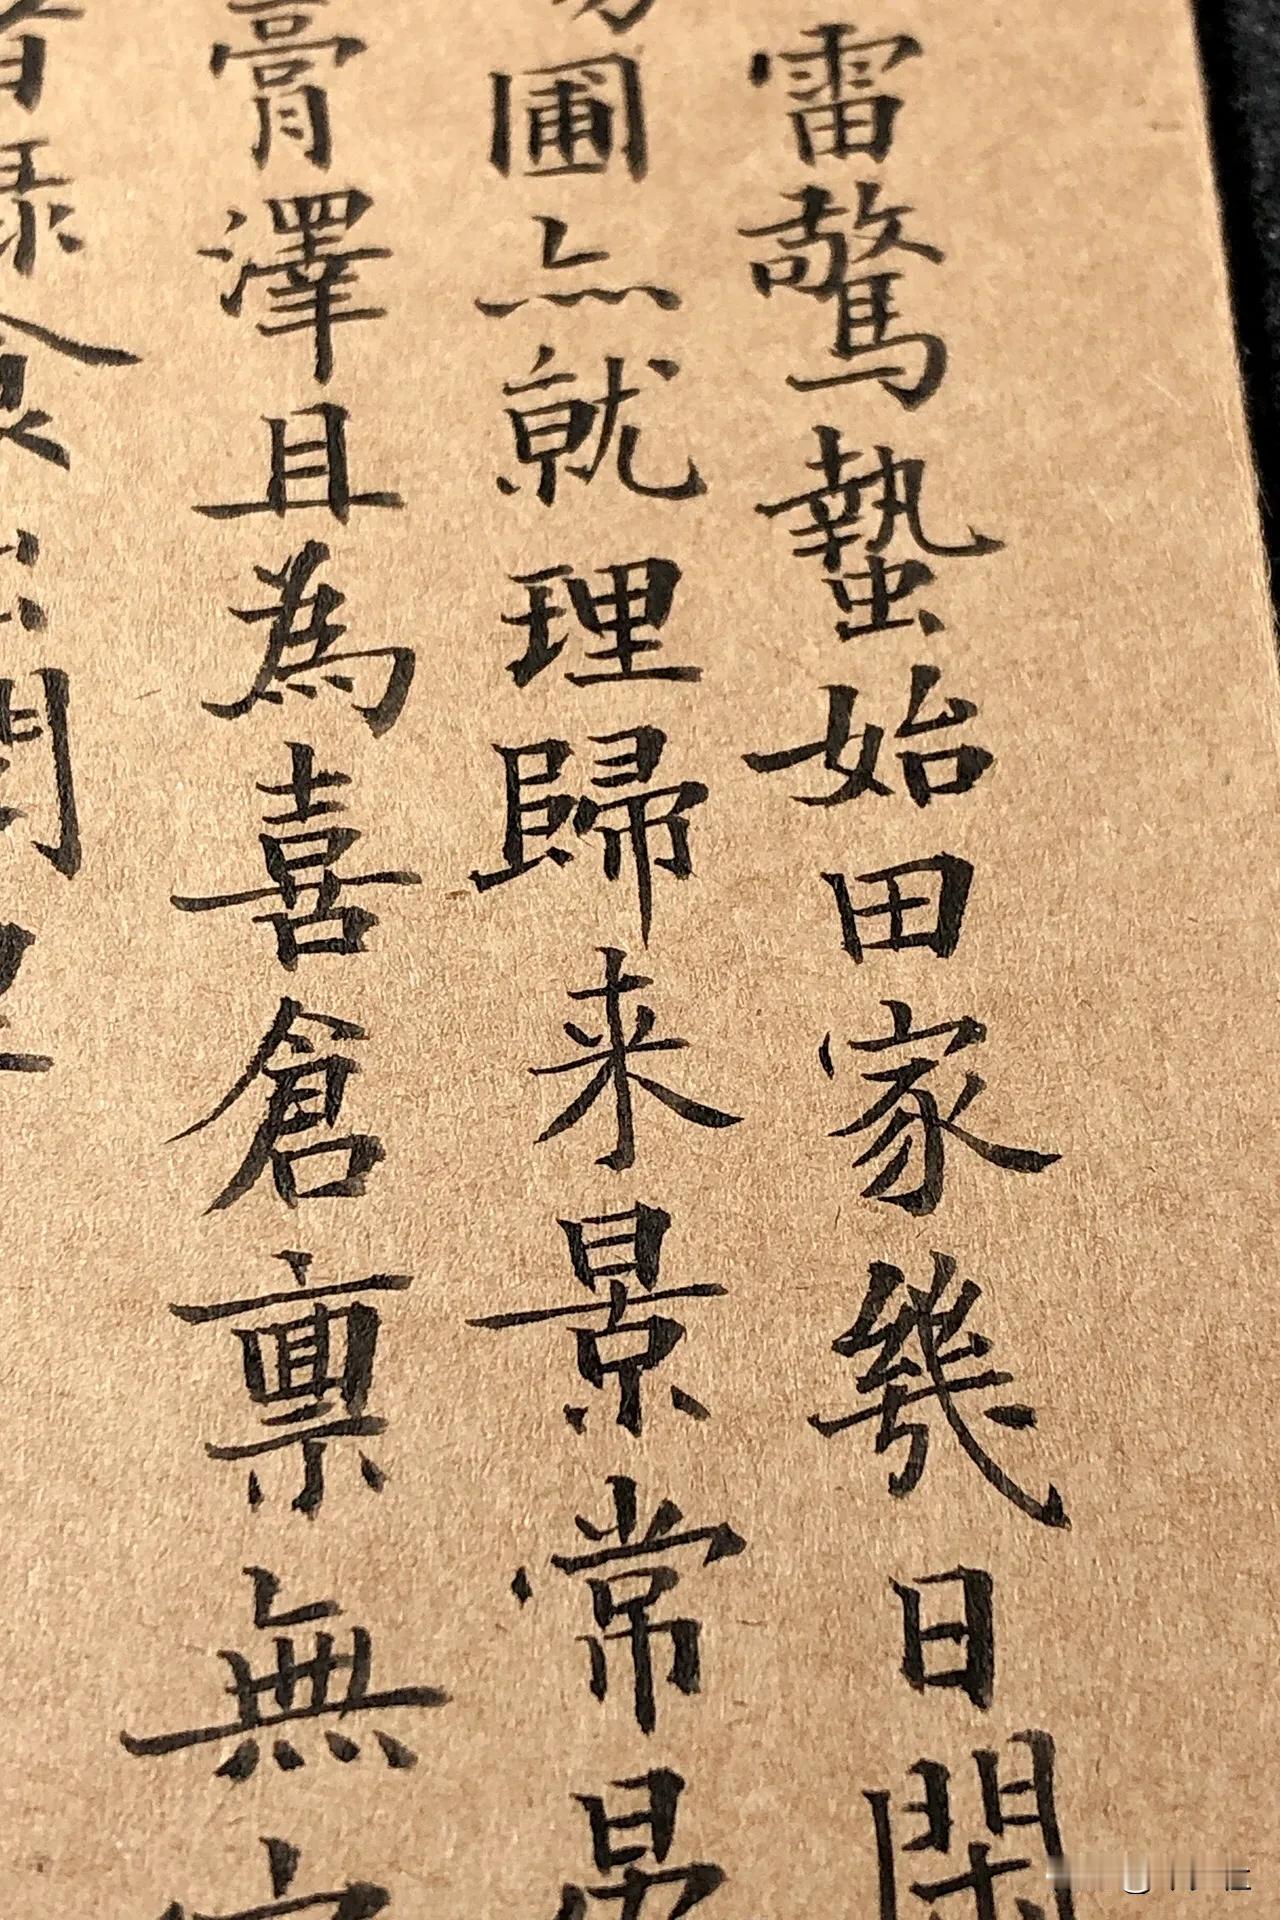 雷驚蟄始田家幾日閑
圃亦就理歸来景常晏
膏澤且為喜倉稟無
祿食出閭里